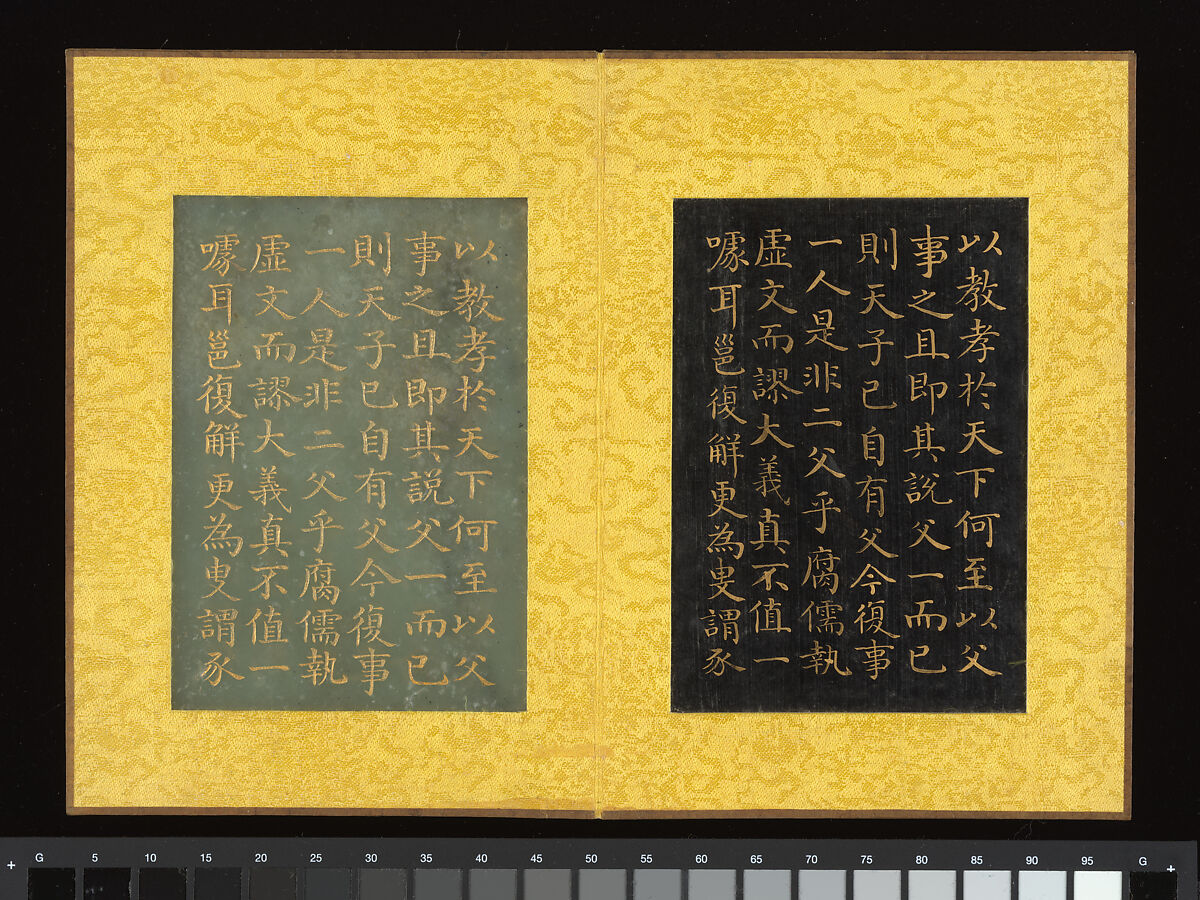 以教孝於天下何至以父
事之且即其說父一而已
則天子已自有父今復事
一人是非二父乎腐儒執
虛文而謬大義真不值一
噱耳邕復解更為叟謂豕
以教孝於天下何至以父
事之且即其說父一而已
則天子已自有父今復事
一人是非二父乎腐儒執
虛文而謬大義真不值一
噱耳邕復解更為叟謂豕
G 5 10 15 20 25 30 35 40 45 50 55 60 65 70 75 80 85 90 95 G